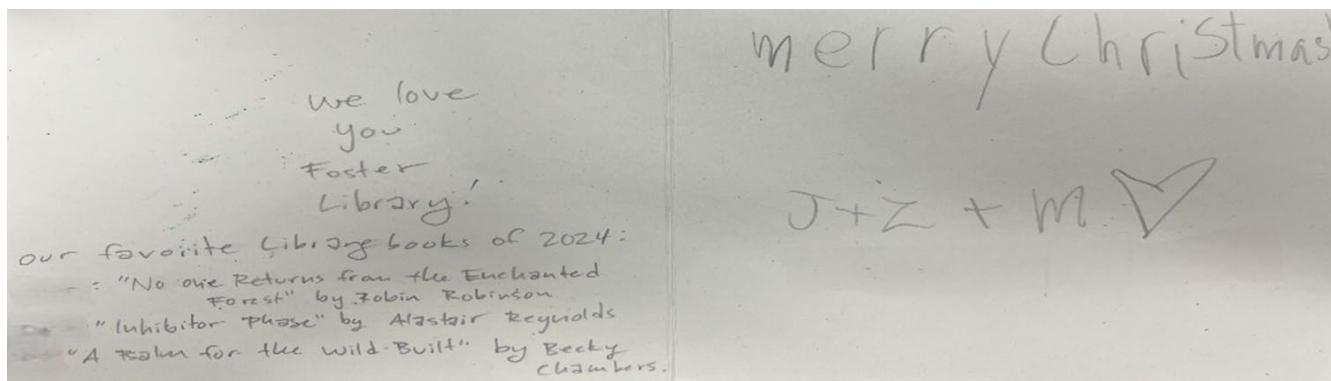 we love
you
Foster
Library!
our favorite Library books of 2024:
: "No one Returns from the Enchanted
Forest" by Robin Robinson
"Inhibitor Phase" by Alastair Reynolds
"A Psalm for the Wild-Built" by Becky
Chambers.
merry Christmas
J + Z + m ♡